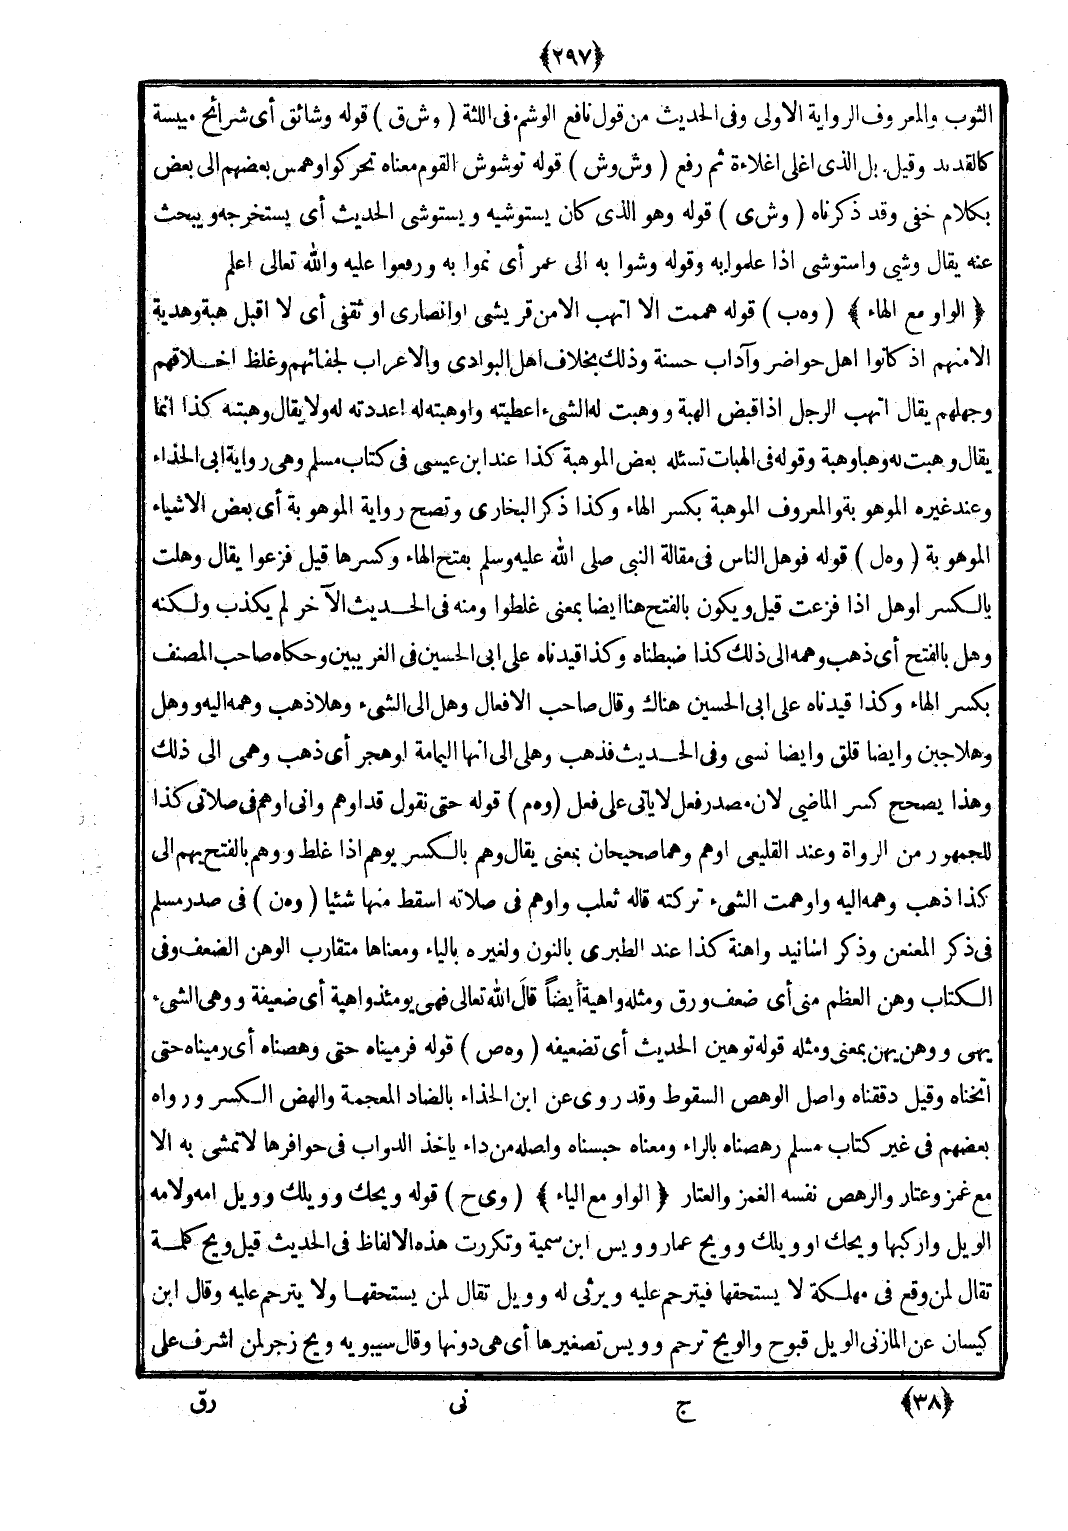 ﴿٢٩٧﴾
الثوب والمعروف الرواية الاولى وفى الحديث من قول نافع الوشم فى اللثة ( وش ق ) قوله وشائق أى شرائح ميبسة
كالقديد وقيل بل الذى اغلى اغلاءة ثم رفع ( وش وش ) قوله توشوش القوم معناه تحركوا وهمس بعضهم الى بعض
بكلام خفى وقد ذكرناه ( وش ى ) قوله وهو الذى كان يستوشيه ويستوشى الحديث أى يستخرجه ويبحث
عنه يقال وشى واستوشى اذا علموا به وقوله وشوا به الى عمر أى نموا به ورفعوا عليه والله تعالى اعلم
﴿ الواو مع الهاء ﴾ ( وه ب ) قوله هممت الا اتهب الا من قريشى او انصارى او ثقفى أى لا اقبل هبة وهدية
الا منهم اذ كانوا اهل حواضر وآداب حسنة وذلك بخلاف اهل البوادى والاعراب لجفائهم وغلظ اخلاقهم
وجهلهم يقال اتهب الرجل اذا قبض الهبة ووهبت له الشىء اعطيته واوهبته له اعددته له ولا يقال وهبته كذا انما
يقال وهبت له وهبا وهبة وقوله فى الهبات تسئله بعض الموهبة كذا عند ابن عيسى فى كتاب مسلم وهى رواية ابى الحذاء
وعند غيره الموهوبة والمعروف الموهبة بكسر الهاء وكذا ذكر البخارى وتصح رواية الموهوبة أى بعض الاشياء
الموهوبة ( وه ل ) قوله فوهل الناس فى مقالة النبى صلى الله عليه وسلم بفتح الهاء وكسرها قيل فزعوا يقال وهلت
بالكسر اوهل اذا فزعت قيل ويكون بالفتح هنا ايضا بمعنى غلطوا ومنه فى الحديث الآخر لم يكذب ولكنه
وهل بالفتح أى ذهب وهمه الى ذلك كذا ضبطناه وكذا قيدناه على ابى الحسين فى الغريبين وحكاه صاحب المصنف
بكسر الهاء وكذا قيدناه على ابى الحسين هناك وقال صاحب الافعال وهل الى الشىء وهلا ذهب وهمه اليه ووهل
وهلا جبن وايضا قلق وايضا نسى وفى الحديث فذهب وهلى الى انها اليمامة اوهجر أى ذهب وهمى الى ذلك
وهذا يصحح كسر الماضى لان مصدر فعل لا ياتى على فعل ( وه م ) قوله حتى نقول قد اوهم وانى اوهم فى صلاتى كذا
للجمهور من الرواة وعند القليعى اوهم وهما صحيحان بمعنى يقال وهم بالكسر يوهم اذا غلط ووهم بالفتح يهم الى
كذا ذهب وهمه اليه واوهمت الشىء تركته قاله ثعلب واوهم فى صلاته اسقط منها شئيا ( وه ن ) فى صدر مسلم
فى ذكر المعنعن وذكر اسانيد واهنة كذا عند الطبرى بالنون ولغيره بالياء ومعناها متقارب الوهن الضعف وفى
الكتاب وهن العظم منى أى ضعف ورق ومثله واهية أيضاً قال الله تعالى فهى يومئذ واهية أى ضعيفة ووهى الشىء
يهى ووهن يهن بمعنى ومثله قوله توهين الحديث أى تضعيفه ( وه ص ) قوله فرميناه حتى وهصناه أى رميناه حتى
اثخناه وقيل دققناه واصل الوهص السقوط وقد روى عن ابن الحذاء بالضاد المعجمة والهض الكسر ورواه
بعضهم فى غير كتاب مسلم رهصناه بالراء ومعناه حبسناه واصله من داء ياخذ الدواب فى حوافرها لا تمشى به الا
مع غمز وعثار والرهص نفسه الغمز والعثار ﴿ الواو مع الياء ﴾ ( وى ح ) قوله ويحك وويلك وويل امه ولامه
الويل واركبها ويحك اوويلك وويح عمار وويس ابن سمية وتكررت هذه الالفاظ فى الحديث قيل ويح كلمة
تقال لمن وقع فى مهلكة لا يستحقها فيترحم عليه ويرثى له وويل تقال لمن يستحقها ولا يترحم عليه وقال ابن
كيسان عن المازنى الويل قبوح والويح ترحم وويس تصغيرها أى هى دونها وقال سيبويه ويح زجر لمن اشرف على
﴿٣٨﴾ ج نى رق